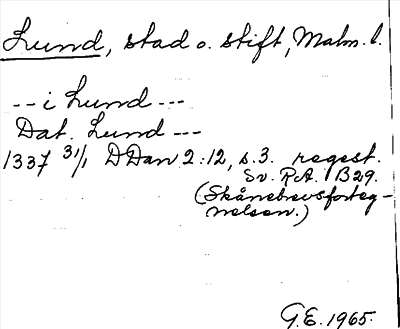 Lund, stad o. stift, Malm. l.
-- i Lund ---
Dat. Lund ---
1337 31/1 DDan 2:12, s. 3. regest.
Sv. R.A. B29.
(Skånebrevsforteg-
nelsen.)
G.E. 1965.